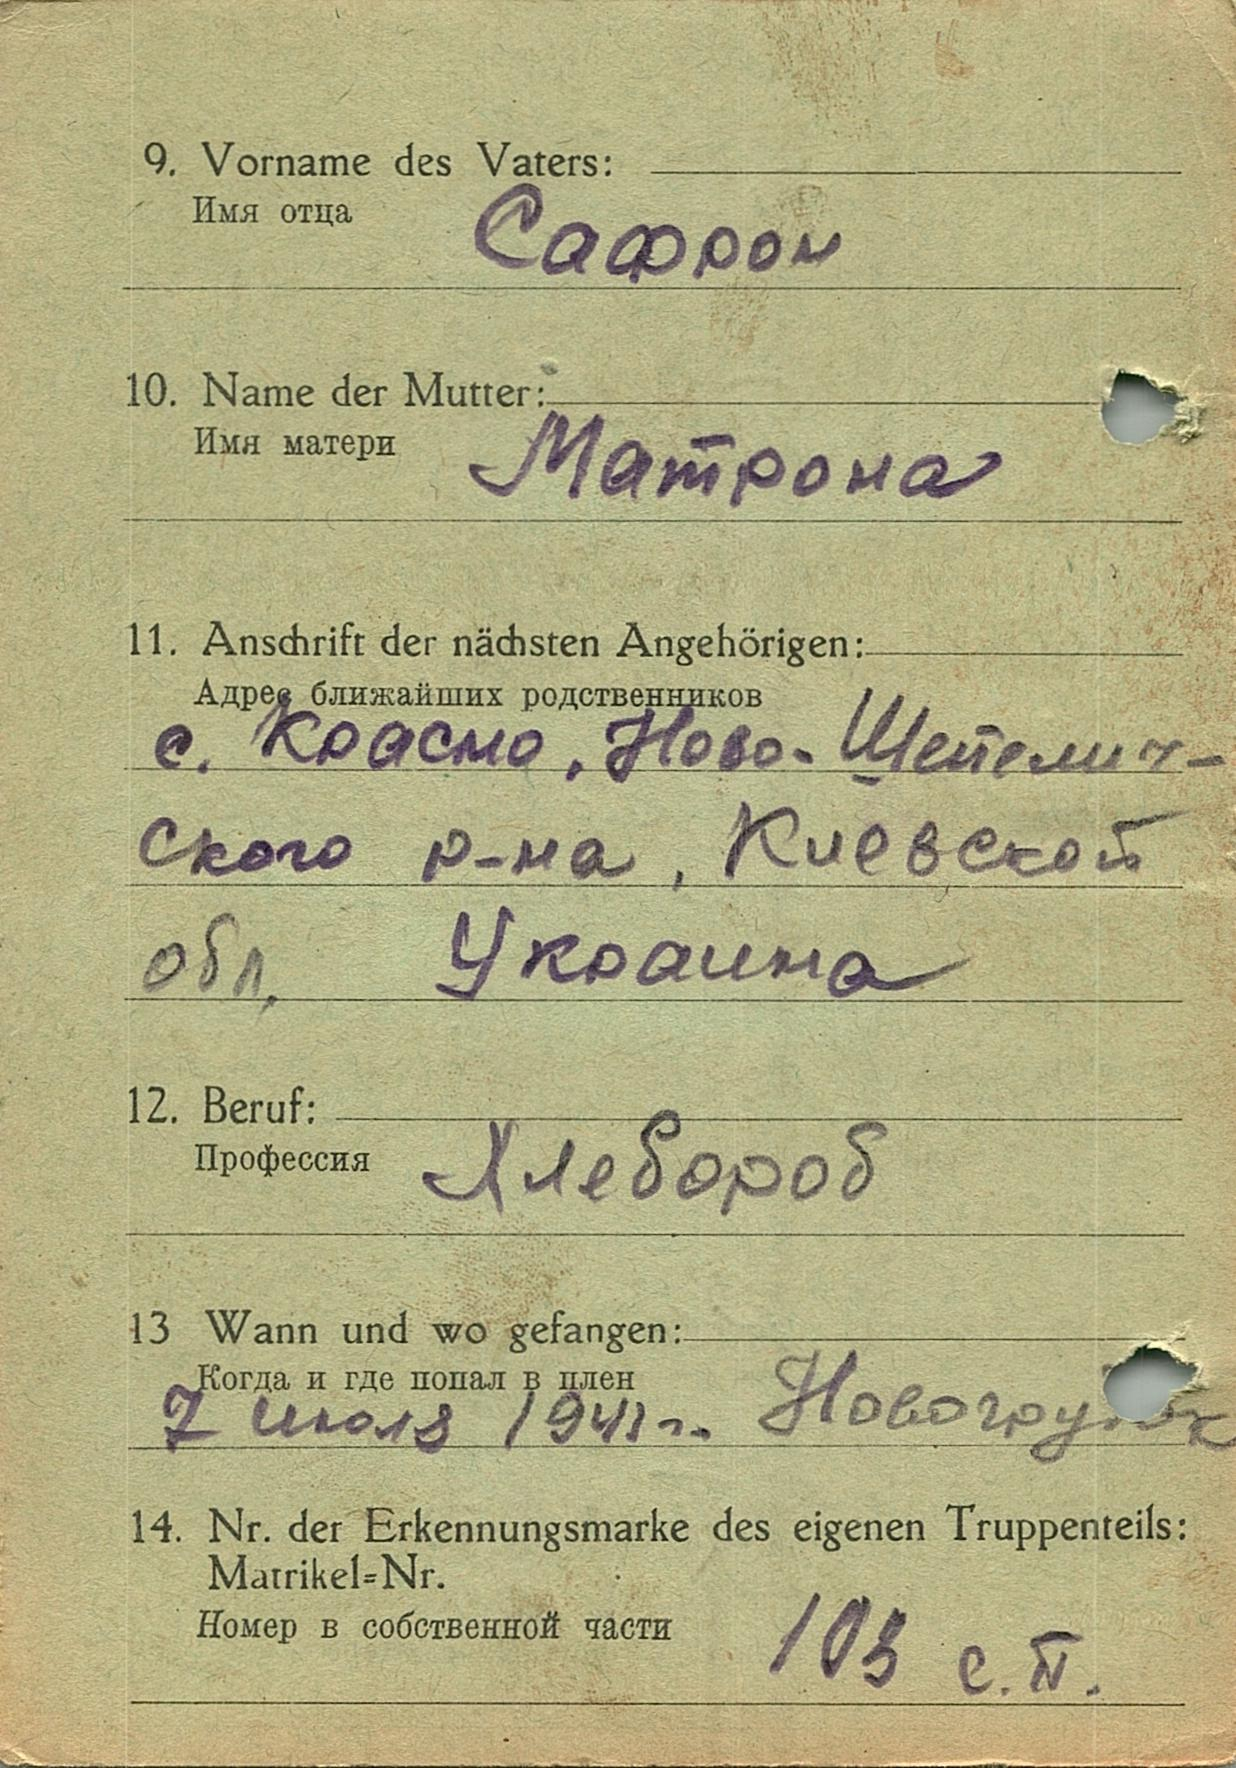 9. Vorname des Vaters:
Имя отца
Сафрон
10. Name der Mutter:
Имя матери
Матрона
11. Anschrift der nächsten Angehörigen:
Адрес ближайших родственников
с. Красно, Ново-Шепелич-
ского р-на, Киевской
обл. Украина
12. Beruf:
Профессия
Хлебороб
13 Wann und wo gefangen:
Когда и где попал в плен
7 июля 1941 г.
14. Nr. der Erkennungsmarke des eigenen Truppenteils:
Matrikel=Nr.
Номер в собственной части
103 с.п.